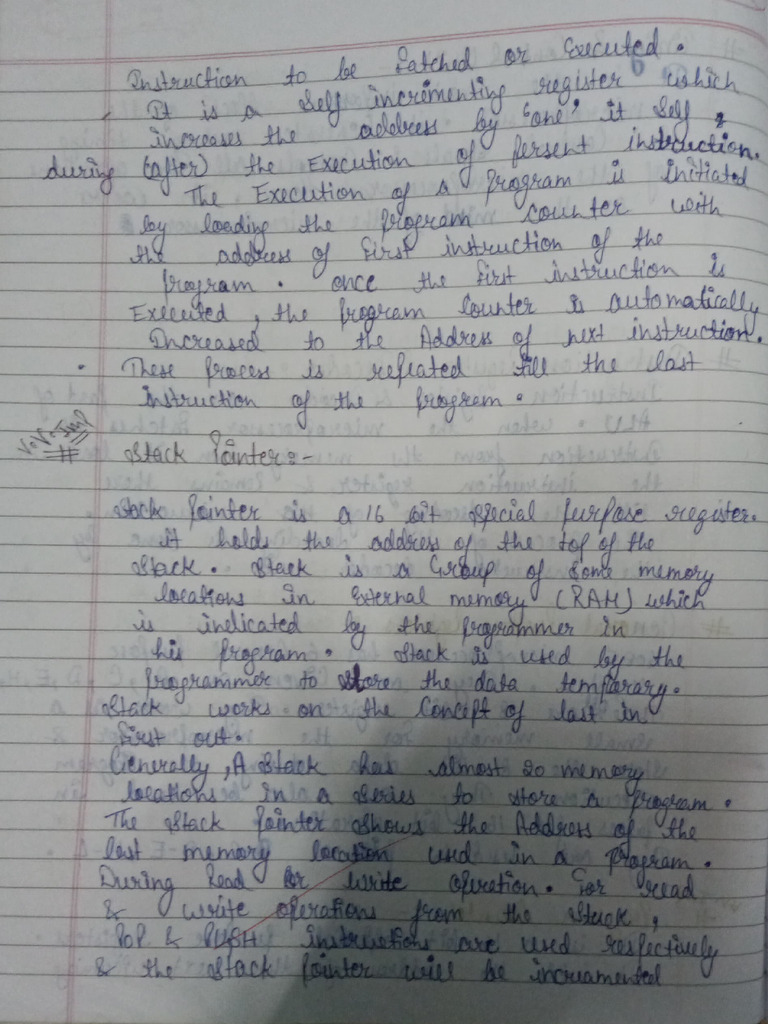 Instruction to be fatched or Executed.
It is a self incrimenting register which
increases the address by "one" it self
during (after) the Execution of persent instruction.
The Execution of a program is initiated
by loading the program counter with
the address of first instruction of the
program. once the first instruction is
Executed, the program counter is automatically
Increased to the Address of next instruction.
These process is repeated till the last
instruction of the program.
V.V. Imp
# Stack Pointer:-
Stack pointer is a 16 bit special purpose register.
it holds the address of the top of the
stack. Stack is a Group of some memory
locations in External memory (RAM) which
is indicated by the programmer in
his program. Stack is used by the
programmer to store the data temparary.
Stack works on the concept of last in
first out.
Generally, A stack has almost 20 memory
locations in a series to store a program.
The stack pointer shows the Address of the
last memory location used in a program.
During Read or write operation. For read
& write operations from the stack,
POP & PUSH instructions are used respectively
& the stack pointer will be increamented